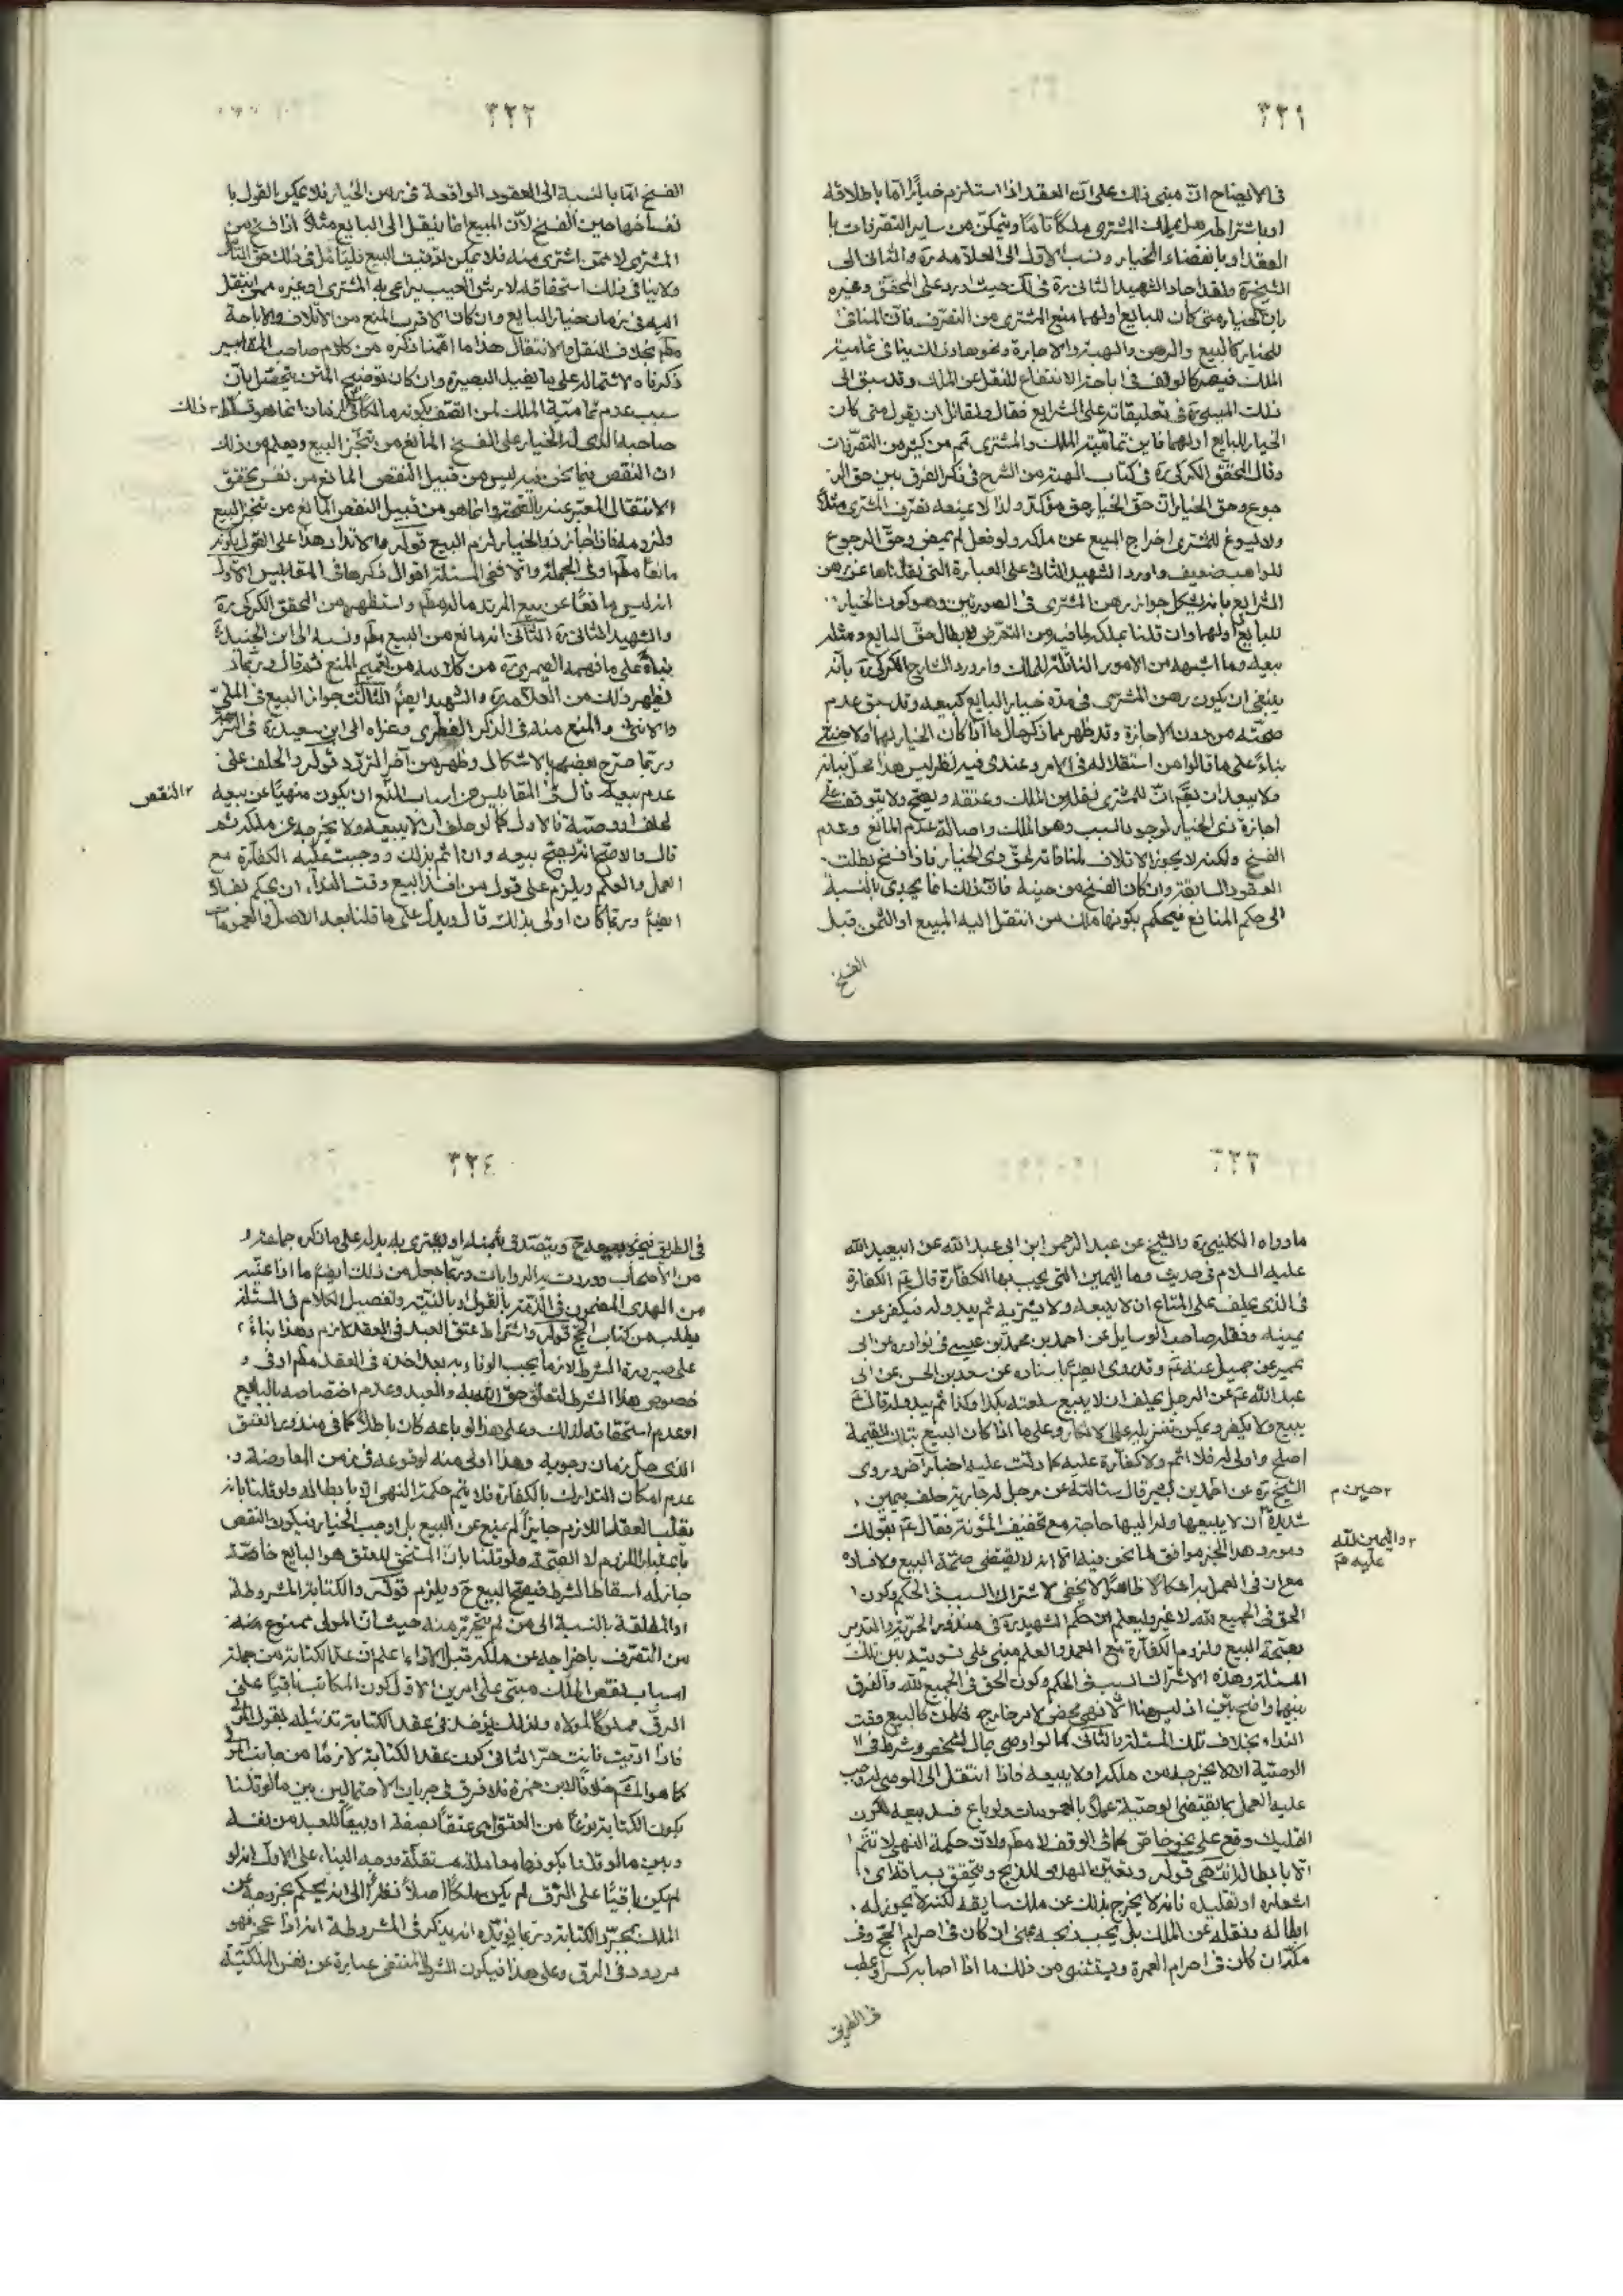 ٣٢١
في الايضاح ان مبنى ذلك على ان العقد اذا استلزم خياراً امّا باطلاقه
او باشتراطه هل يملك المشترى ملكاً تامّاً ويتمكّن من ساير التصرّفات با
العقد او بانقضاء الخيار ونسب الاول الى العلامة ره والثانى الى
الشيخ ره ولقد اجاد الشهيد الثانى ره في لك حيث اورد على المحقق وغيره
بان الخيار متى كان للبايع او لهما منع المشترى من التصرّف فان المنافى
للخيار كالبيع والرهن والهبة والاجارة ونحوها وذلك ينافى تماميّة
الملك فيصير كالوقف في اباحة الانتفاع للنقل عن الملك وقد سبق الى
ذلك الميسى ره في تعليقاته على الشرايع فقال ولقائل ان يقول متى كان
الخيار للبايع او لهما فاين تماميّة الملك والمشترى ثم من كثير من التصرّفات
وقال المحقق الكركى ره في كتاب الهبة من الشرح في ذكر الفرق بين حق الر
جوع وحق الخيار ان حق الخيار حق مؤكّد ولذا لا ينفذ تصرّف المشترى مثلاً
ولا يسوغ للمشترى اخراج المبيع عن ملكه ولو فعل لم يمض وحق الرجوع
للواهب ضعيف واورد الشهيد الثانى على العبارة التى نقلناها عن رهن
الشرايع بانه يشكل جواز رهن المشترى في الصورتين وهو كون الخيار
للبايع او لهما وان قلنا بملكه لما فيه من التعرّض لابطال حق البايع ومثله
بيعه وما اشبهه من الامور الناقلة للملك واورد الشارح الكركى ره بانه
ينبغى ان يكون رهن المشترى في مدة خيار البايع كبيعه وقد سبق عدم
صحّته من دون الاجازة وقد ظهر مما ذكر حال ما اذا كان الخيار لهما ولاجنبى
بناءً على ما قالوا من استقلاله في الامر وعندى فيه نظر ليس هذا محل بيانه
ولا يبعد ان يقم ان للمشترى نقله من الملك وعتقه ويصح ولا يتوقف على
اجازة ذى الخيار لوجود السبب وهو الملك واصالة عدم المانع وعدم
الفسخ ولكنه لا يجوز الاتلاف لمنافاته لحق ذى الخيار فاذا فسخ بطلت
العقود السابقة وان كان الفسخ من حينه فان ذلك انما يجدى بالنسبة
الى حكم المنافع فيحكم بكونها ملك من انتقل اليه المبيع او الثمن قبل
الفسخ
٣٢٢
الفسخ امّا بالنسبة الى العقود الواقعة في زمن الخيار فلا يمكن القول با
نفساخها حين الفسخ لان المبيع انما ينتقل الى البايع مثلاً اذا فسخ من
المشترى لا ممن اشترى منه فلا يمكن توقيف البيع فليتأمل في ذلك حق التأمل
ولا ينافى ذلك استحقاقه لارش العيب يراعى به المشترى او غيره ممن انتقل
اليه في زمان خيار البايع وان كان الاقرب المنع من الاتلاف والاباحة
مطم بخلاف النقل والانتقال هذا ما اهمّنا ذكره من كلام صاحب المقابيس
ذكرناه لاشتماله على ما يفيد البصيرة وان كان توضيح المتن يتحصّل بان
سبب عدم تماميّة الملك لمن اتّصف بكونه مالكاً في الزمان انما هو تسلّط ذلك
صاحبه الذى له الخيار على الفسخ المانع من تنجّز البيع ويعلم من ذلك
ان النقص فيما نحن فيه ليس من قبيل النقص المانع من نفس تحقق
الانتقال المعبّر عنه بالصحّة وانما هو من قبيل النقص المانع من تنجّز البيع
ولزومه فاذا اجاز ذو الخيار لزم البيع قوله والارتداد هذا على القول بكونه
مانعاً مطم او في الجملة والا ففى المسئلة اقوال ذكرها في المقابيس الاول
انه ليس مانعاً عن بيع المرتد مالم مطم واستظهره من المحقق الكركى ره
والشهيد الثانى ره الثانى انه مانع من البيع مطم ونسبه الى ابن الجنيد ره
بناءً على ما فهمه الصيمرى ره من كلامه من تعميم المنع ثم قال وربما
يظهر ذلك من العلامة ره والشهيد ايضاً الثالث جواز البيع في الملّى
والانثى والمنع منه في الذكر الفطرى وعزاه الى ابن سعيد ره في النزهة
وربما صرّح بعضهم بالاشكال وظهر من آخر التردّد قوله والحلف على
عدم بيعه قال في المقابيس من اسباب المنع ان يكون منهيّاً عن بيعه
النقص
لحلف او وصيّة فالاول كما لو حلف ان لا يبيعه ولا يخرجه عن ملكه ثم
قال والاصح انه يصح بيعه وان اثم بذلك ووجبت عليه الكفّارة مع
العمل والعلم ويلزم على قول من افسد البيع وقت النداء ان يحكم بفساده
ايضاً وربما كان اولى بذلك قال ويدل على ما قلنا بعد الاصل والعمومات
٣٢٣
ما رواه الكلينى ره والشيخ عن عبد الرحمن ابن ابى عبد الله عن ابيعبد الله
عليه السلام في حديث وما اليمين التى يجب بها الكفّارة قال ع الكفّارة
في الذى يحلف على المتاع ان لا يبيعه ولا يشتريه ثم يبدو له فيكفر عن
يمينه ونقله صاحب الوسايل عن احمد بن محمد بن عيسى في نوادره عن ابى
عمير عن جميل عنه ع وقد روى ايضاً باسناده عن سعد بن الحسن عن ابى
عبد الله ع عن الرجل يحلف ان لا يبيع سلعته بكذا وكذا ثم يبدو له قال ع
يبيع ولا يكفر ويمكن تنزيله على الانكار وعلى ما اذا كان البيع بتلك القيمة
اصلح واولى له فلا اثم ولا كفّارة عليه كما دلّت عليه اخبار آخر وروى
الشيخ ره عن احمد بن بصير قال سئالته عن رجل له جارية حلف بيمين
حين م
شديدة ان لا يبيعها وله اليها حاجة مع تخفيف المؤنة فقال ع بقولك
واليمين لله عليه م
ومورد هذا الخبر موافق لما نحن فيه الا انه لا يقتضى صحّة البيع ولا فساده
مع ان في العمل به اشكالاً ظاهراً لا يخفى لاشتراك السبب في الحكم وكون
الحق في الجميع لله لا غير وليعلم ان حكم الشهيد ره في منذور الحريّة والتدبير
بصحّة البيع ولزوم الكفّارة مع العمد والعلم مبنى على تسويته بين تلك
المسئلة وهذه الاشتراك السبب في الحكم وكون الحق في الجميع لله والفرق
بينهما واضح بيّن اذ ليس هنا الا نهى محض لامر خارج فكان كالبيع وقت
النداء بخلاف تلك المسئلة والثانى كما لو اوصى بمال لشخص وشرط في
الوصيّة ان لا يخرجه من ملكه ولا يبيعه فاذا انتقل الى الموصى له وجب
عليه العمل بمقتضى الوصيّة عملاً بالعمومات ولو باع فسد بيعه لكون
التمليك وقع على نحو خاص كما في الوقف لا مطم ولان حكمة النهى لا تتم
الا بابطاله انتهى قوله وتعيين الهدى للذبح ويتحقق بسياقه اى
اشعاره او تقليده فانه لا يخرج بذلك عن ملك سايقه لكنه لا يجوز له
ابطاله ونقله عن الملك بل يجب ذبحه بمنى ان كان في احرام الحج وفي
مكّة ان كان في احرام العمرة ويستثنى من ذلك ما اذا اصابه كسر او عطب
في الطريق
٣٢٤
في الطريق فيجوز بيعه ح ويتصدق بثمنه او يشترى به بدله على ما ذكره جماعة
من الاصحاب ووردت به الروايات وربما جعل من ذلك ايضاً ما اذا عيّنه
من الهدى المضمون في الذمة بالقول او بالنيّة وتفصيل الكلام في المسئلة
يطلب من كتاب الحج قوله واشتراط عتق العبد في العقد لازم وهذا بناءً
على صيرورة الشرط لازماً يجب الوفاء به بعد اخذه في العقد مطم او في
خصوص هذا الشرط لتعلق حق الله به والعبد وعدم اختصاصه بالبايع
او عدم استحقاقه لذلك وعلى هذا لو باعه كان باطلاً كما في منذور العتق
الذى حلّ زمان وجوبه وهذا اولى منه لوقوعه في ضمن المعاوضة و
عدم امكان التدارك بالكفّارة فلا يتم حكمة النهى الا بابطاله ولو قلنا بانه
يقلب العقد اللازم جايزاً لم يمنع عن البيع بل اوجب الخيار فيكون النقص
باعتبار اللزوم لا الصحّة ولو قلنا بان المستحق للعتق هو البايع خاصة
جاز له اسقاط الشرط فيصح البيع ح ويلزم قوله والكتابة المشروطة
او المطلقة بالنسبة الى من لم يتحرّر منه حيث ان المولى ممنوع منه
من التصرّف باخراجه عن ملكه قبل الاداء اعلم ان عدّ الكتابة من جملة
اسباب نقص الملك مبنى على امرين الاول كون المكاتب باقياً على
الرق مملوكاً لمولاه ولذلك يؤخذ في عقد الكتابة تذييله بقول المولى
فاذا ادّيت فانت حرّ الثانى كون عقد الكتابة لازماً من جانب المولى
كما هو المشهور خلافاً لابن حمزة فلا فرق في جريان الاحتمالين بين ما لو قلنا
بكون الكتابة نوعاً من العتق اى عتقاً بصفة او بيعاً للعبد من نفسه
وبين ما لو قلنا بكونها معاملة مستقلّة ووجه البناء على الاول انه لو
لم يكن باقياً على الرق لم يكن ملكاً اصلاً نظراً الى انه يحكم بخروجه عن
الملك بمجرّد الكتابة وربما يؤيّده انه يذكر في المشروطة انه اذا عجز فهو
مردود في الرق وعلى هذا فيكون الشرط المنتفى عبارة عن نفس الملكيّة